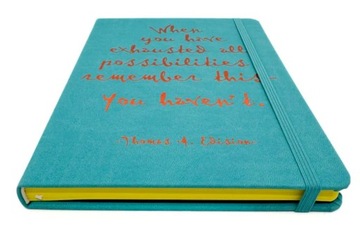 When
you have
exhausted all
possibilities
remember this-
You haven't.
Thomas A. Edison